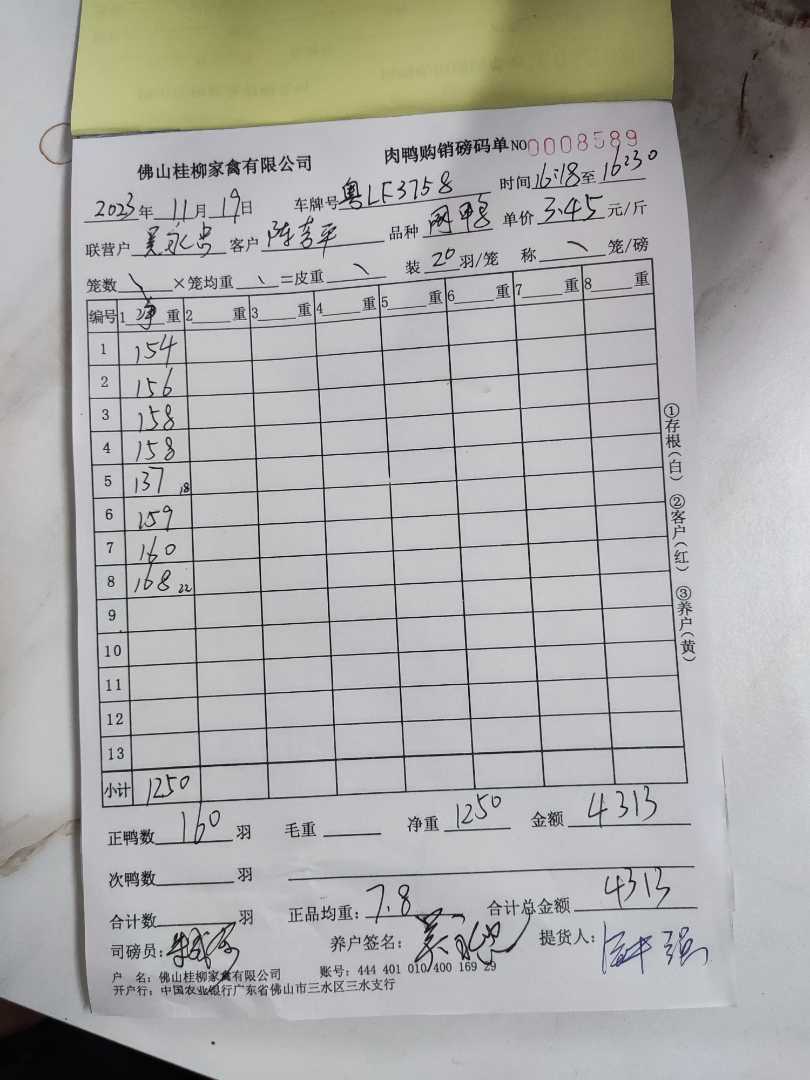 佛山桂柳家禽有限公司 肉鸭购销磅码单 NO 0008589
2023年 11月 19日 车牌号 粤LF3758 时间 16:18 至 16:30
联营户 吴永 客户 陈 平 品种 鸭 单价 3.45 元/斤
笼数 \ ×笼均重 \ =皮重 \ 装 20 羽/笼 称 \ 笼/磅
编号 1 净 重 2 重 3 重 4 重 5 重 6 重 7 重 8 重
1 154
2 156
3 158
4 158
5 137 18
6 159
7 160
8 168 22
9
10
11
12
13
小计 1250
①存根(白) ②客户(红) ③养户(黄)
正鸭数 160 羽 毛重 净重 1250 金额 4313
次鸭数 羽
合计数 羽 正品均重: 7.8 合计总金额 4313
司磅员: 养户签名: 吴永 提货人: 强
户 名: 佛山桂柳家禽有限公司 账号: 444 401 010 400 169 29
开户行: 中国农业银行广东省佛山市三水区三水支行